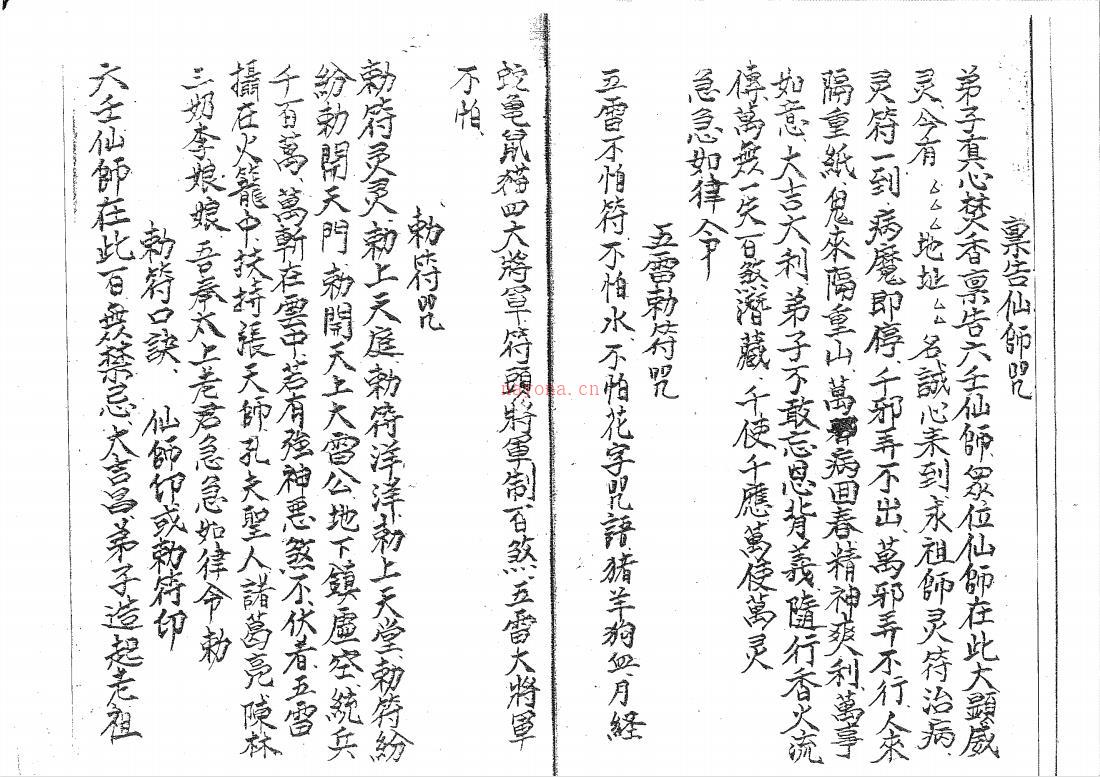 稟告仙師咒
弟子真心焚香稟告六壬仙師眾位仙師在此大顯威
灵今有厶厶厶地址厶厶名誠心来到求祖師灵符治病
灵符一到病魔即停千邪弄不出萬邪弄不行人來
隔重紙鬼來隔重山萬病回春精神爽利萬事
如意大吉大利弟子不敢忘恩背義隨行香火流
傳萬無一失百煞潛藏千使千應萬使萬灵
急急如律令
五雷勅符咒
五雷不怕符不怕水不怕花字咒語猪羊狗血月経
蛇龟鼠猫四大將軍符頭將軍制百煞五雷大將軍
不怕
勅符咒
勅符灵灵勅上天庭勅符洋洋勅上天堂勅符紛
紛勅開天門勅開天上大雷公地下鎮虛空統兵
千百萬萬斬在雲中若有強神惡煞不伏者五雷
攝在火籠中扶持張天師孔夫聖人諸葛亮陳林
三奶李娘娘吾奉太上老君急急如律令勅
勅符口訣 仙師印或勅符印
六壬仙師在此百無禁忌大吉昌弟子造起老祖
nayona.cn